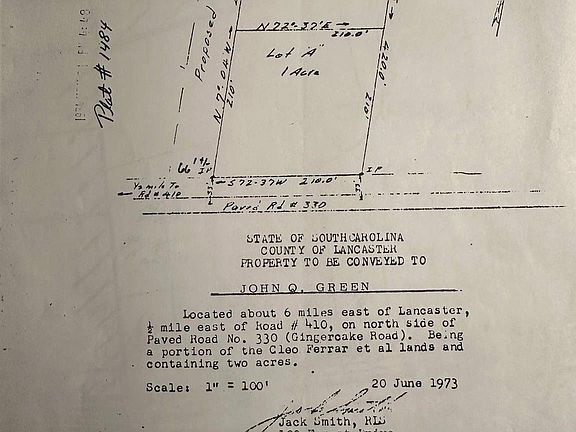 Plat # 1484
Proposed
N 72°-37'E
210.0'
Lot "A"
1 Acre
N 7°-04'W
210'
210'
420.0'
66'
IP
IP
S 72-37 W 210.0'
33'
33'
½ mile To
Rd # 410
Paved Rd # 330
STATE OF SOUTH CAROLINA
COUNTY OF LANCASTER
PROPERTY TO BE CONVEYED TO
JOHN Q. GREEN
Located about 6 miles east of Lancaster,
½ mile east of Road # 410, on north side of
Paved Road No. 330 (Gingercake Road). Being
a portion of the Cleo Ferrar et al lands and
containing two acres.
Scale: 1" = 100'
20 June 1973
Jack Smith, RLS